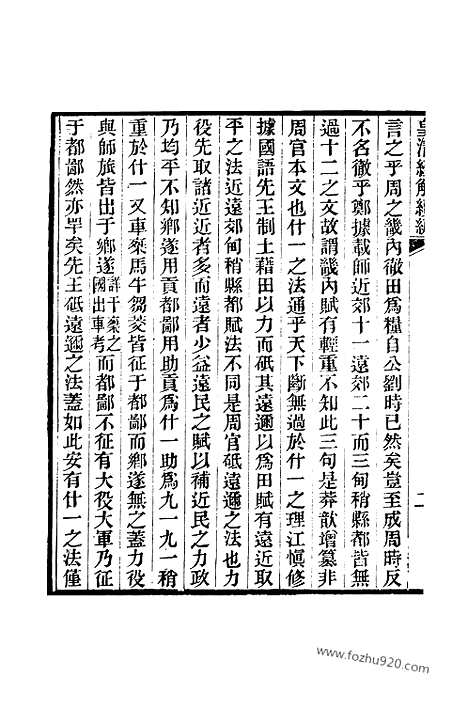 皇清經解續編
二
言之乎周之畿內徹田爲糧自公劉時已然矣豈至成周時反
不名徹乎鄭據載師近郊十一遠郊二十而三甸稍縣都皆無
過十二之文故謂畿內賦有輕重不知此三句是莽歆增纂非
周官本文也什一之法通乎天下斷無過於什一之理江愼修
據國語先王制土藉田以力而砥其遠邇以爲田賦有遠近取
平之法近遠郊甸稍縣都賦法不同是周官砥遠邇之法也力
役先取諸近近者多而遠者少益遠民之賦以補近民之力政
乃均平不知鄉遂用貢都鄙用助貢爲什一助爲九一九一稍
重於什一又車乘馬牛芻茭皆征于都鄙而鄉遂無之蓋力役
與師旅皆出于鄉遂詳千乘之國出車考而都鄙不征有大役大軍乃征
于都鄙然亦罕矣先王砥遠邇之法蓋如此安有什一之法僅
www.fozhu920.com